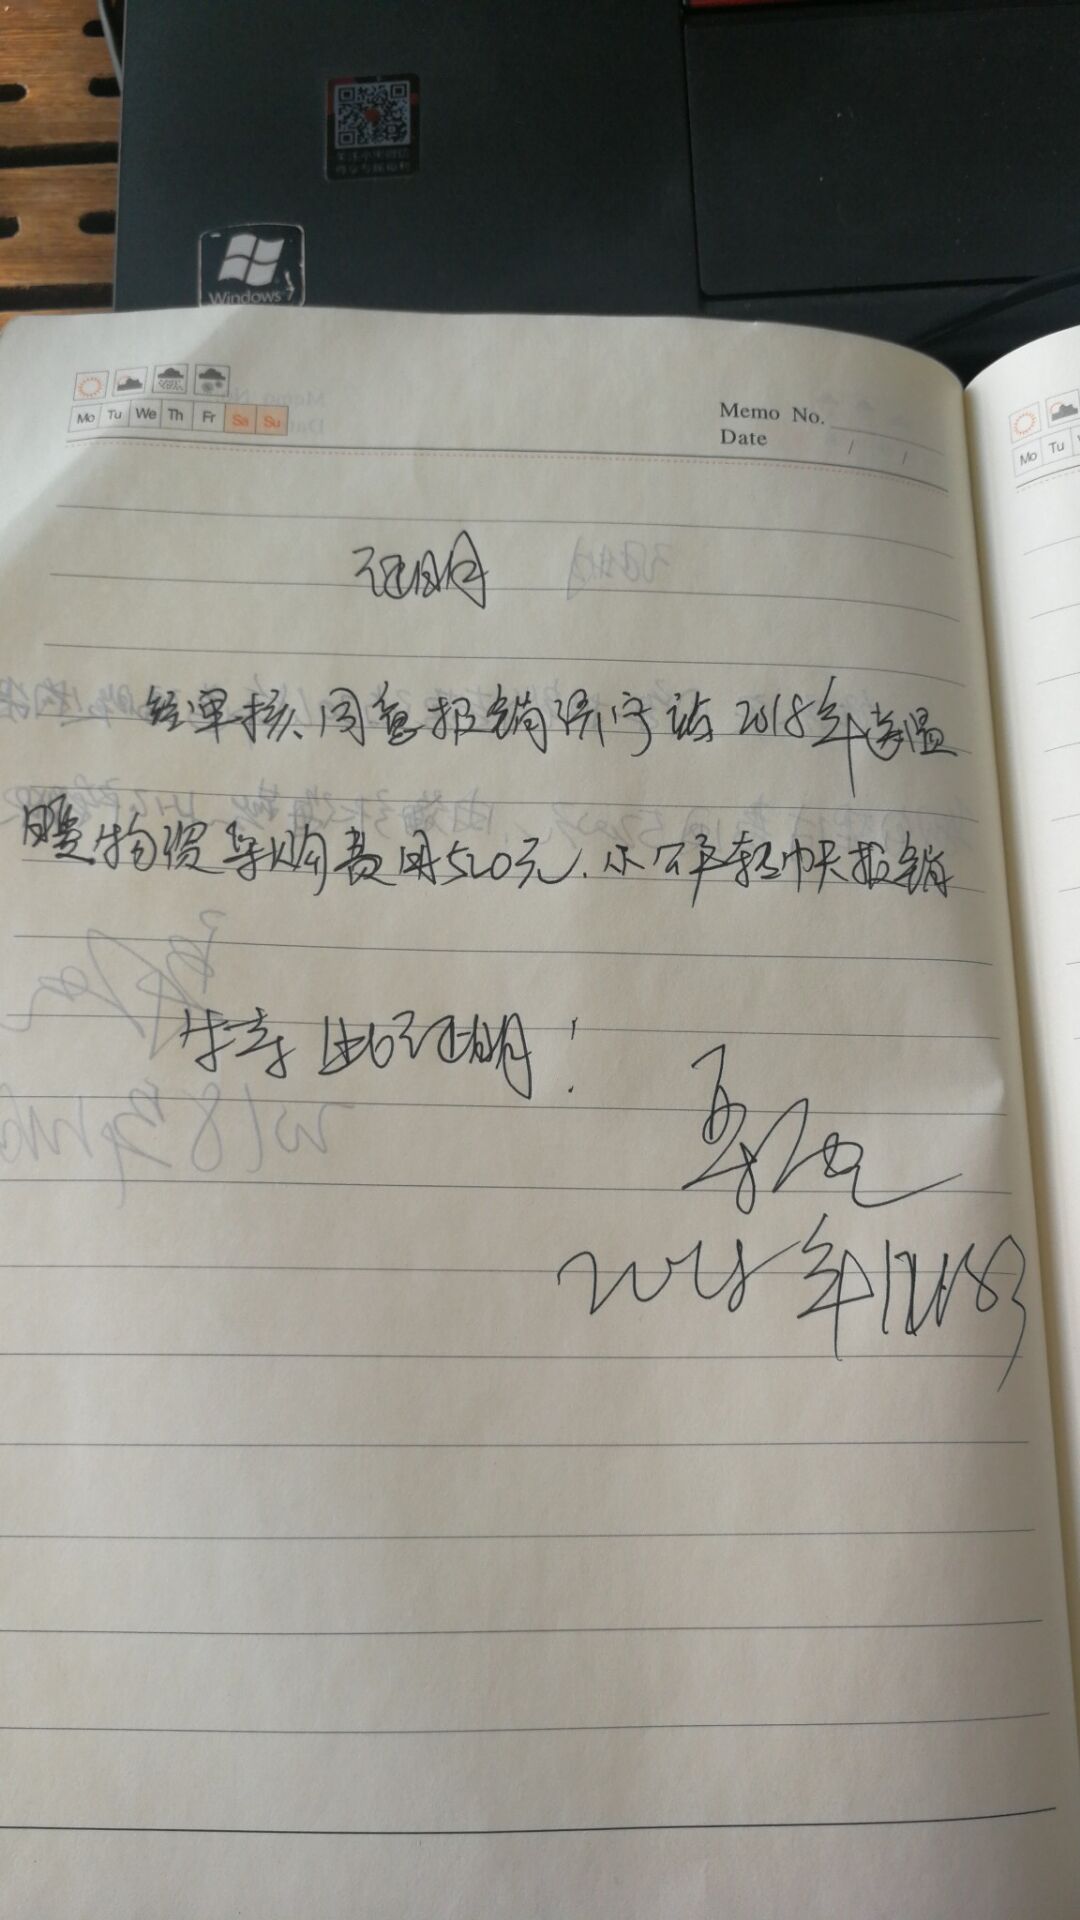 Windows 7
Mo Tu We Th Fr Sa Su
Memo No.
Date / /
Mo Tu
证明
经审核,同意报销济宁站2018年送温
暖物资采购费用520元.从公车轻帐报销
特此证明!
2018年12月18日